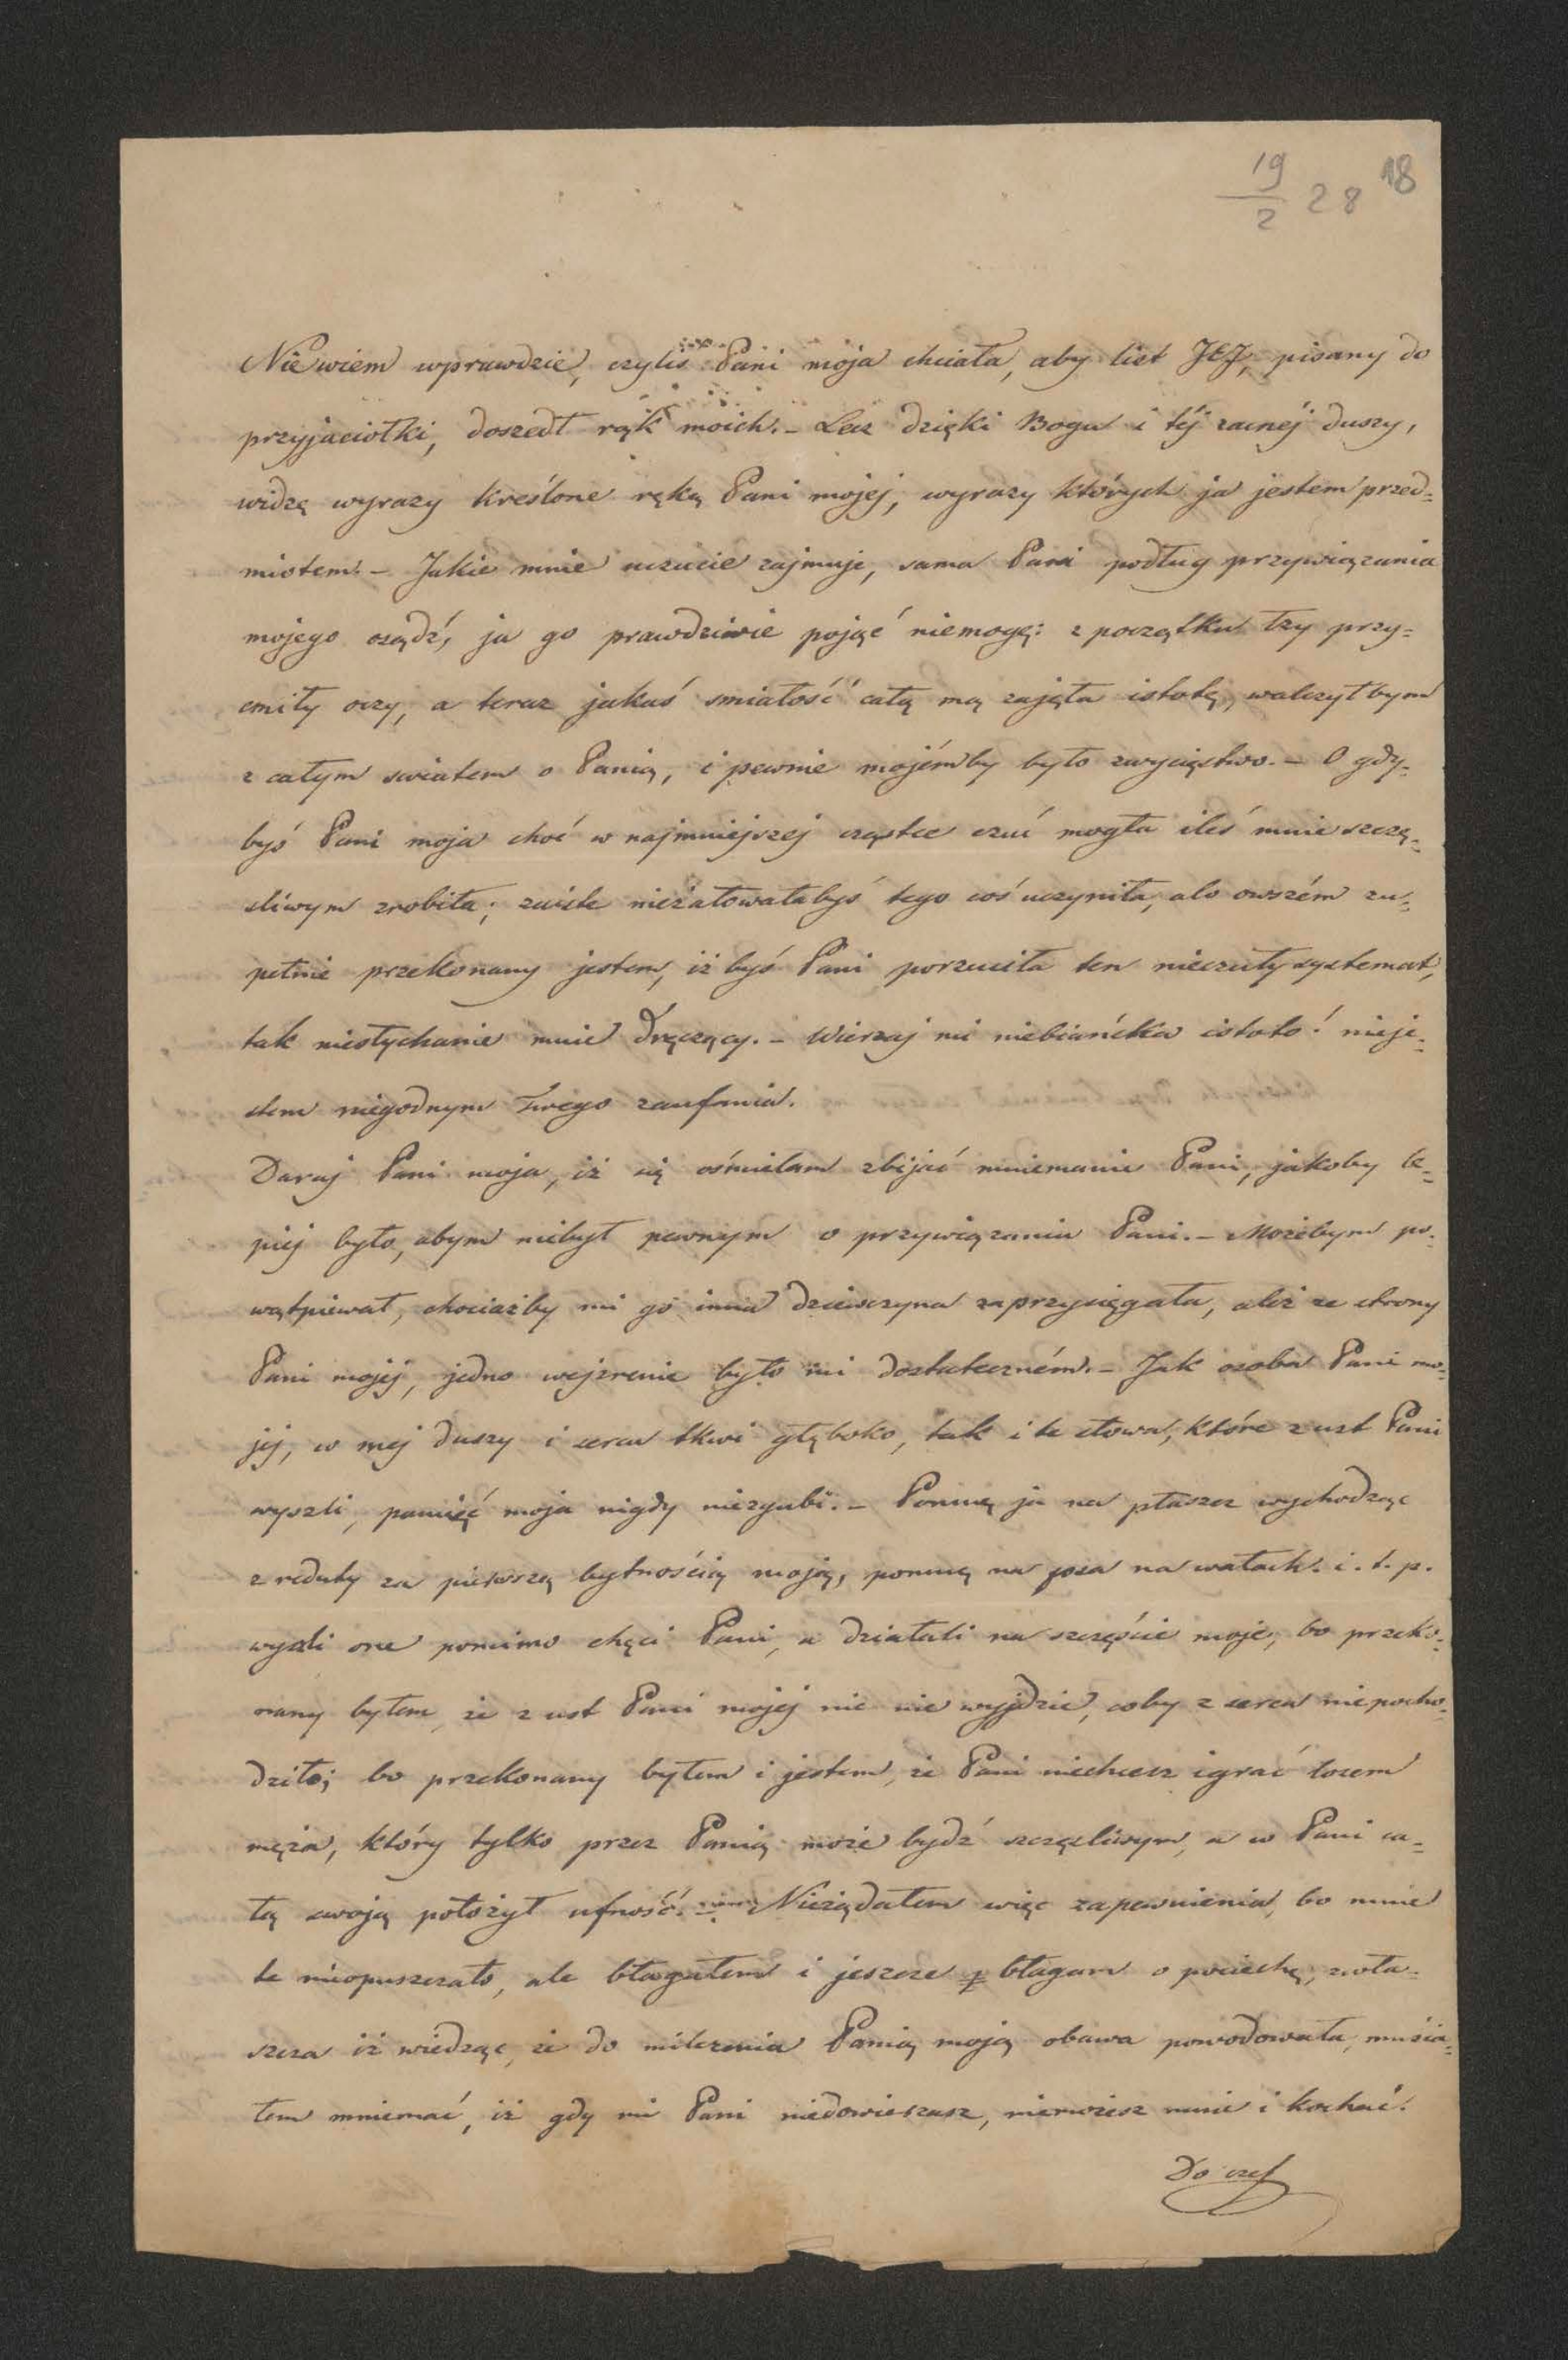 19/2 28 18
Nie wiem wprawdzie, czyliś Pani moja chciała, aby list JEJ, pisany do
przyjaciołki, doszedł rąk moich. – Lecz dzięki Bogu i téj zacnéj duszy,
widzę wyrazy kreślone ręką Pani mojej, wyrazy których ja jestem przed=
miotem. – Jakie mnie uczucie zajmuje, sama Pani podług przywiązania
mojego osądź, ja go prawdziwie pojąć niemogę: z początku łzy przy=
cmiły oczy, a teraz jakaś smiałość całą mą zajęła istotę, walczyłbym
z całym swiatem o Panią, i pewnie mojémby było zwycięstwo. – O gdy=
byś Pani moja choć w najmniejszej cząstce czuć mogła ileś mnie szczę=
sliwym zrobiła; nieżałowałabyś tego coś uczyniła, ale owszém zu=
pełnie przekonany jestem, iż byś Pani porzuciła ten nieczuły systemat,
tak niesłychanie mnie dręczący. – Wierzaj mi niebiańska istoto! nieje=
stem niegodnym Twego zaufania.
Daruj Pani moja, iż się ośmielam zbijać mniemanie Pani, jakoby le=
piej było, abym niebył pewnym o przywiązaniu Pani. – Możebym po=
wątpiewał, chociażby mi go inna dziewczyna zaprzysięgała, ależ ze strony
Pani mojej, jedno wejzrenie było mi dostateczném. – Jak osoba Pani mo=
jej, w mej duszy i sercu tkwi głęboko, tak i te słowa, które z ust Pani
wyszli, pamięć moja nigdy niezgubi. – Pomnę ja na płaszcz wychodząc
z reduty za pierwszą bytnością moją, pomnę na psa na wałach. i. t. p.
wyszli one pomimo chęci Pani, a działali na szczęście moje, bo przeko=
nany byłem, że z ust Pani mojej nic nie wyjdzie, coby z serca niepocho=
dziło; bo przekonany byłem i jestem, że Pani niechcesz igrać losem
męża, który tylko przez Panią może bydź szczęsliwym, a w Pani ca=
łą swoją położył ufność. – Nieżądałem więc zapewnienia, bo mnie
te nieopuszczało, ale błagałem i jeszcze błagam o pociechę, zwła=
szcza iż wiedząc, że do milczenia Panią moją obawa powodowała, musia=
łem mniemać, iż gdy mi Pani niedowierzasz, niemożesz mnie i kochać.